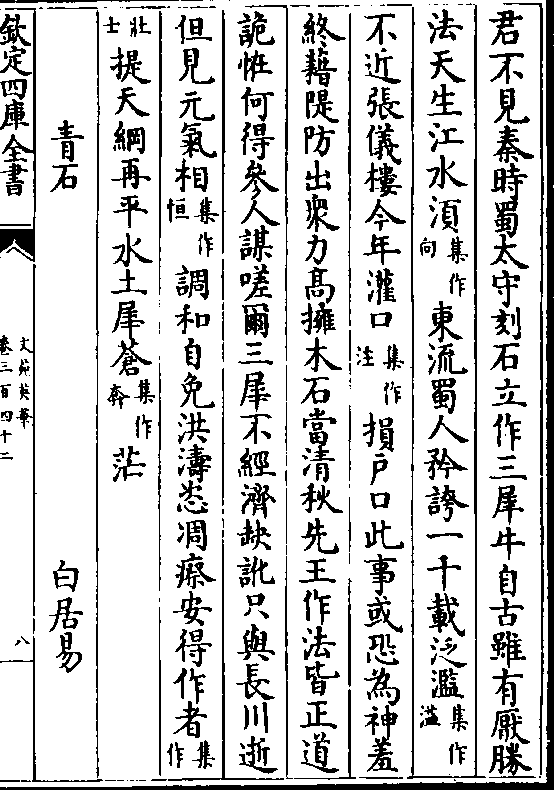 君不見秦時蜀太守刻石立作三犀牛自古雖有厭勝
法天生江水湏集作向東流蜀人矜誇一千載泛濫集作溢
不近張儀樓今年灌口集作注損户口此事或恐為神羞
終藉隄防出衆力髙擁木石當清秋先王作法皆正道
詭怪何得參人謀嗟爾三犀不經濟缺訛只與長川逝
但見元氣相集作恒調和自免洪濤恣凋瘵安得作者集作
壯士提天綱再平水土犀蒼集作奔茫
青石 白居易
欽定四庫全書
文苑英華
卷三百四十二
八